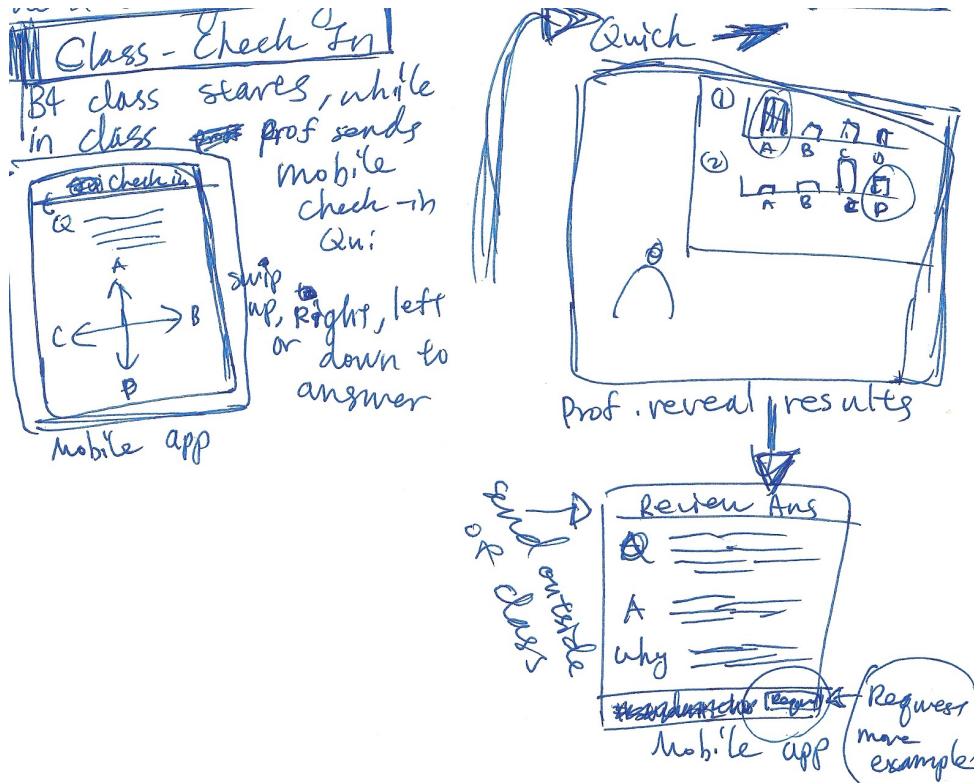 Class - Check In
B4 class stares, while
in class prof sends
mobile
check-in
Qui
Check in
Q
A
B
C
D
swip
up, Right, left
or down to
answer
Mobile app
Quick
①
A B C D
②
A B C D
Prof. reveal results
send outside
of class
Review Ans
Q
A
why
Request
Mobile app
Request
more
example